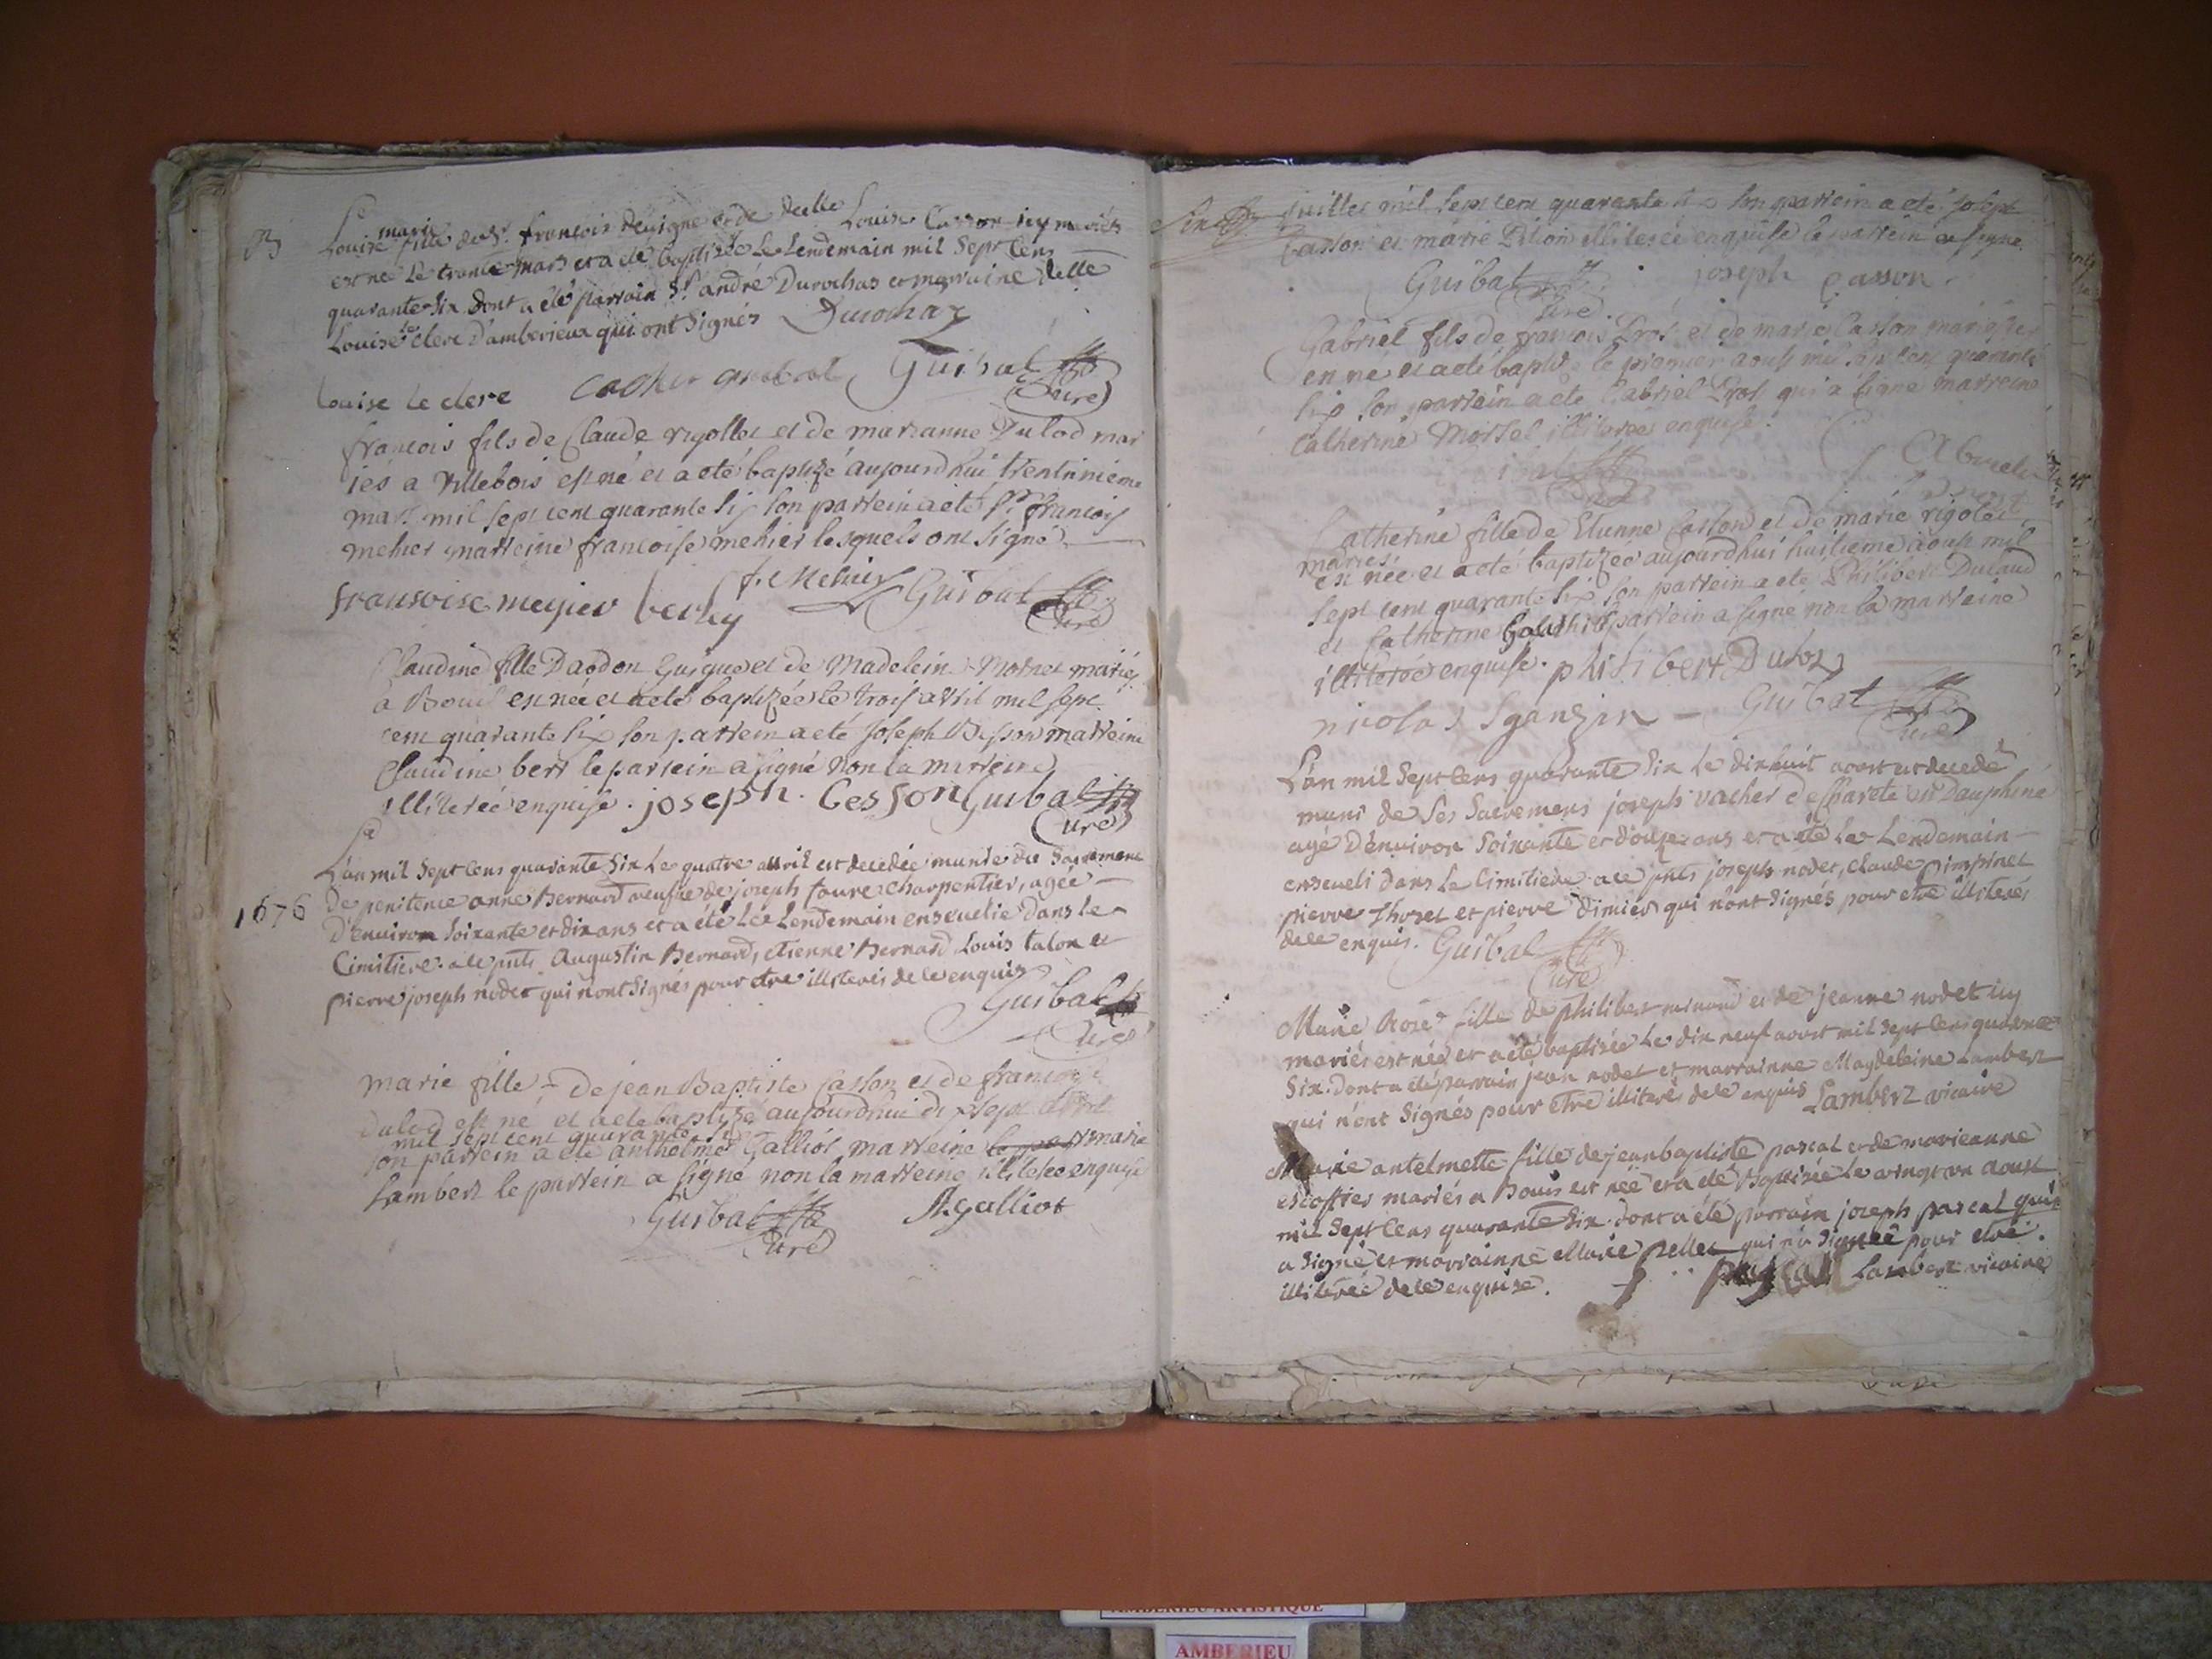 Louise marie fille du Sr. françois deuigne et de delle Louise Casson icy mariés
est née le trente mars et a été baptisée Le Lendemain mil Sept Cens
quarante Six dont a été parrain Sr. andré Durochas et marraine delle
Louise Le clerc D'amberieux qui ont Signés Durochaz
Louise le clerc Guibal
Curé
françois fils de Claude rigollet et de marianne Dulod mar
iés a Villebois est né et a eté baptizé aujourdhui trentunieme
mars mil sept cent quarante six son parrein a eté Sr francois
mehier marreine francoise mehier lesquels ont signé
fransoise mejier f. Mehier Guibal
Curé
Claudine fille D'aodon Guigue et de Madelein Mornet mariés
a Bouis est née et a eté baptizée le trois avril mil sept
cent quarante six son parrein a eté Joseph Besson marreine
Claudine bert le parrein a signé non la marreine
illiterée enquise. joseph. Besson Guibal
Curé
L'an mil Sept Cens quarante Six Le quatre auril est decedée munie du Sacrement
1676 De penitence anne Bernard veufve de joseph faure charpentier, agée
D'environ Soixante et dix ans et a été Le Lendemain enseuelie dans le
Cimitiere. a ce pnts Augustin Bernard, etienne Bernard Louis talon et
pierre joseph nodet qui n'ont Signés pour etre illiterés de ce enquis
Guibal
Curé
marie fille de jean Baptiste Casson et de francoise
Dulod est né et a eté baptizé aujourdhui dixsept avril
mil sept cent quarante six
son parrein a eté anthelme Galliot marreine marie
Lambert le parrein a signé non la marreine illiterée enquise
Guibal A. galliot
Curé
juillet mil sept cent quarante six son parrein a eté joseph
Casson et marie Pition illiterée enquise le parrein a signé.
Guibal joseph Casson.
Curé.
Gabriel fils de francois Prost et de marie Casson mariés
en né et a eté baptizé le premier aoust mil sept cent quarante
six son parrein a eté Gabriel Prost qui a signé marreine
Catherine Morsel illiterée enquise.
Catherine fille de Etienne Casson et de marie rigolet
mariés
est née et a eté baptizée aujourdhui huitieme aoust mil
sept cent quarante six son parrein a eté Philibert Dulaud
et Catherine le parrein a signé non la marreine
illiterée enquise. philibert Duloz
nicolas Sganzin Guibal
Curé
L'an mil Sept Cens quarante Six le dixhuit aoust est decedé
muni de Ses Sacremens joseph vacher de ssparete en Dauphiné
agé D'environ Soixante et douze ans et a été Le Lendemain
enseueli dans Le Cimitiere a ce pnts joseph nodet, Claude Simpinet
pierre Thozet et pierre Dimier qui n'ont Signés pour etre illiterés
de ce enquis. Guibal
Curé
Marie Rose fille de philibert minand et de jeanne nodet icy
mariés est née et a été baptisée Le dix neuf aoust mil Sept Cens quarante
Six. dont a été parrain jean nodet et marrainne Magdeleine Lambert
qui n'ont Signés pour etre illiteré de ce enquis Lambert vicaire
Marie antelmette fille de jean baptiste pascal et de marieanne
escoffier mariés a Bouis est née et a été Baptisée Le vingt un aoust
mil Sept Cens quarante Six. dont a été parrain joseph pascal qui
a Signé et marrainne Marie pellet qui n'a Signée pour etre
illiterée de ce enquise. J. pascal Lambert vicaire
AMBERIEU ARTISTIQUE
AMBERIEU